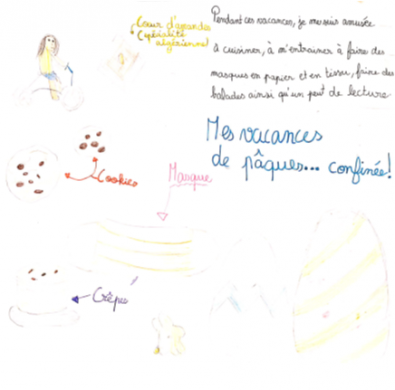 Cœur d'amandes
(spécialité
algérienne)
Pendant ces vacances, je me suis amusée
à cuisiner, à m'entrainer à faire des
masques en papier et en tissu, faire des
balades ainsi qu'un peu de lecture
Mes vacances
de pâques... confinée!
Cookies
Masque
Crêpe